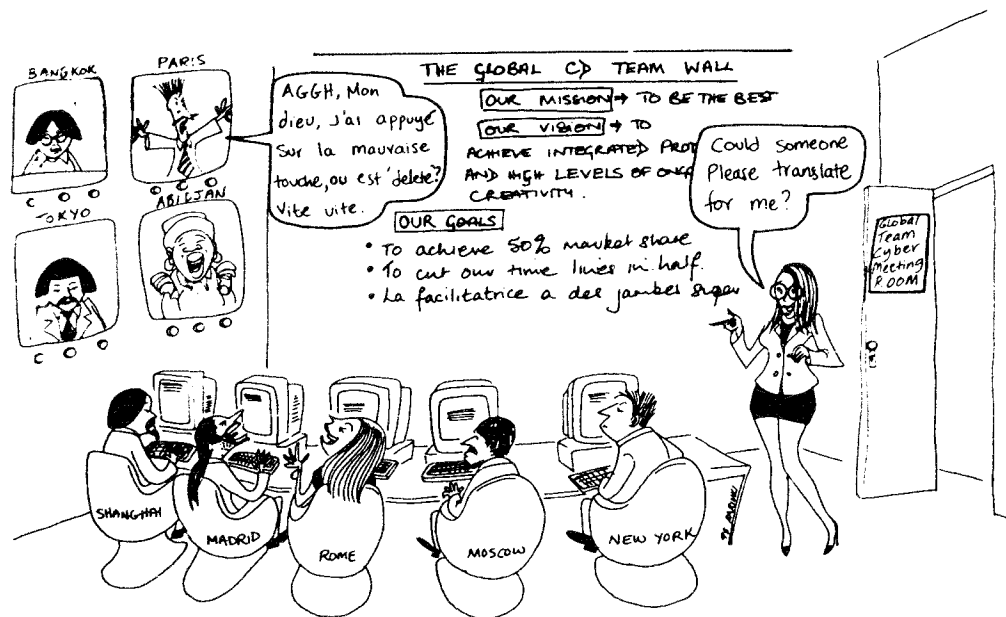 BANGKOK
PARIS
TOKYO
ABIDJAN
AGGH, Mon
dieu, J'ai appuyé
sur la mauvaise
touche, ou est 'delete'?
Vite vite.
THE GLOBAL CD TEAM WALL
OUR MISSION → TO BE THE BEST
OUR VISION → TO
ACHIEVE INTEGRATED PROD
AND HIGH LEVELS OF
CREATIVITY.
OUR GOALS
• To achieve 50% market share
• To cut our time lines in half.
• La facilitatrice a des jambes super
Could someone
Please translate
for me?
Global
Team
Cyber
Meeting
ROOM
SHANGHAI
MADRID
ROME
MOSCOW
NEW YORK